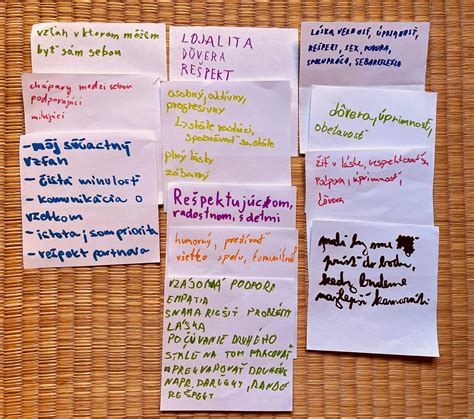 vzťah v ktorom môžem
byť sám sebou
chápavý medzi sebou
podporujúci
milujúci
- môj súčastný
vzťah
- čistá minulosť
- komunikácia o
všetkom
- istota, som priorita
- rešpekt partnera
LOJALITA
DÔVERA
REŠPEKT
osobný, aktívny,
progresívny
stále rastúci,
spoznávať sa stále
plný lásky
zábavný
Rešpektujúcom,
radostnom, s deťmi
humorný, prežívať
všetko spolu, komunikač
VZÁJOMNÁ PODPORA
EMPATIA
SNAHA RIEŠIŤ PROBLÉMY
LÁSKA
POČÚVANIE DRUHÉHO
STÁLE NA TOM PRACOVAŤ
PREKVAPOVAŤ DRUHÉHO
NAPR. DARČEKY, RANDE
REŠPEKT
LÁSKA, VERNOSŤ, ÚPRIMNOSŤ,
REŠPEKT, SEX, POKORA,
SPOLUPRÁCA, SEBAREFLEXIA
dôvera, úprimnosť,
obetavosť
žiť v láske, rešpektovať,
podpora, úprimnosť,
dôvera
by sme
prísť do bodu,
kedy budeme
najlepší kamaráti